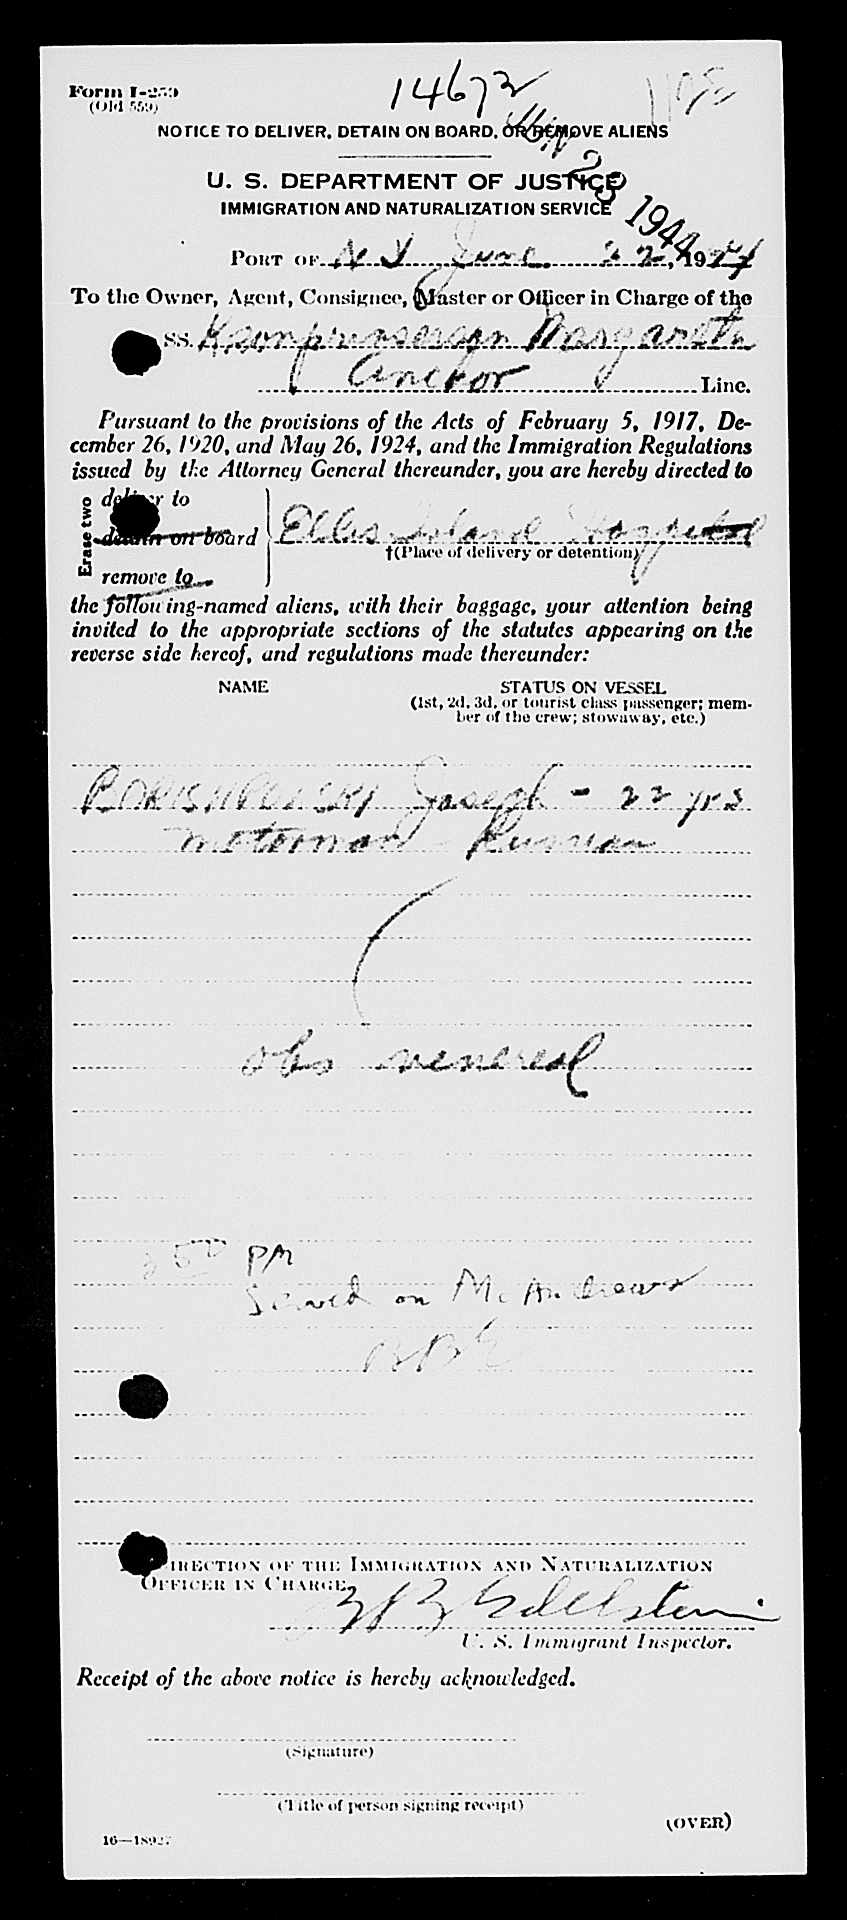 Form I-259
(Old 559)
14672
NOTICE TO DELIVER, DETAIN ON BOARD, OR REMOVE ALIENS
JUN 23 1944
U. S. DEPARTMENT OF JUSTICE
IMMIGRATION AND NATURALIZATION SERVICE
PORT OF N Y June 22, 1944
To the Owner, Agent, Consignee, Master or Officer in Charge of the
SS. Margaretta
Anchor Line.
Pursuant to the provisions of the Acts of February 5, 1917, De-
cember 26, 1920, and May 26, 1924, and the Immigration Regulations
issued by the Attorney General thereunder, you are hereby directed to
Erase two
deliver to
detain on board Ellis Island Hospital
†(Place of delivery or detention)
remove to
the following-named aliens, with their baggage, your attention being
invited to the appropriate sections of the statutes appearing on the
reverse side hereof, and regulations made thereunder:
NAME STATUS ON VESSEL
(1st, 2d, 3d, or tourist class passenger; mem-
ber of the crew; stowaway, etc.)
Joseph - 22 yrs
motorman Russian
obs venereal
50 PM
Served on McAndrews
DIRECTION OF THE IMMIGRATION AND NATURALIZATION
OFFICER IN CHARGE
Edelstein
U. S. Immigrant Inspector.
Receipt of the above notice is hereby acknowledged.
(Signature)
(Title of person signing receipt)
(OVER)
16—18927